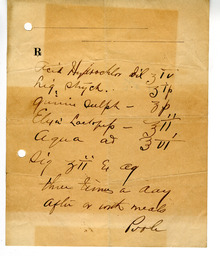 R
Acid Hydrochlor Dil ʒiv
Liq. Strych. ʒ
Quinia Sulph — ʒ
Elix Lactopep — ℥ii
Aqua ad ℥vi
Sig ʒii Ex aq
three times a day
after or with meals
Poole